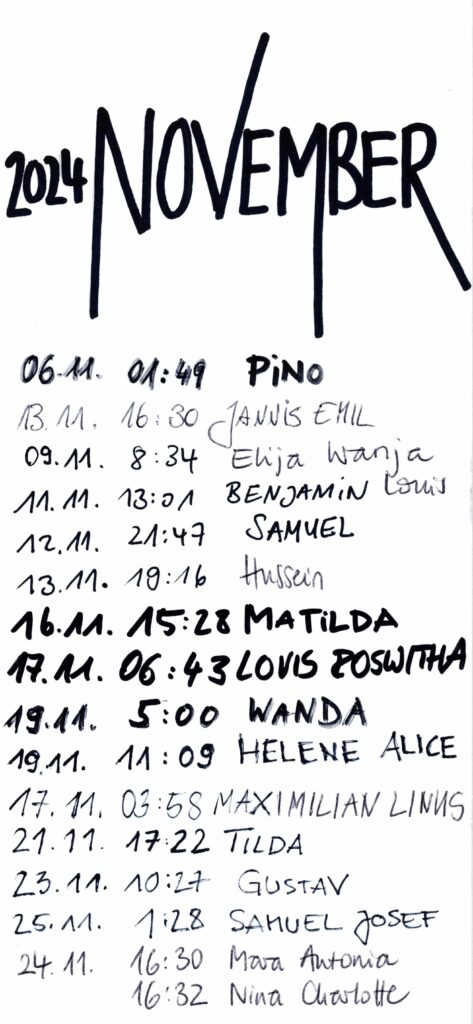 2024 NOVEMBER
06.11. 01:49 PiNO
13.11. 16:30 JANNIS EMIL
09.11. 8:34 Elija Wanja
11.11. 13:01 BENJAMiN Louis
12.11. 21:47 SAMUEL
13.11. 19:16 Hussein
16.11. 15:28 MATiLDA
17.11. 06:43 LOVIS ROSWITHA
19.11. 5:00 WANDA
19.11. 11:09 HELENE ALICE
17.11. 03:58 MAXIMILIAN LINUS
21.11. 17:22 TILDA
23.11. 10:27 GUSTAV
25.11. 1:28 SAMUEL JOSEF
24.11. 16:30 Mara Antonia
16:32 Nina Charlotte